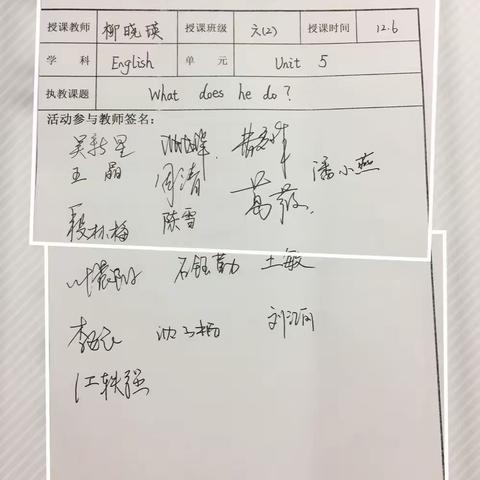 授课教师 柳晓瑛 授课班级 六(2) 授课时间 12.6
学 科 English 单 元 Unit 5
执教课题 What does he do?
活动参与教师签名:
吴新星
王晶 周清 潘小燕
段林梅 陈雪 葛薇.
石钰勤 王敏
李 沈子杨
江轶强